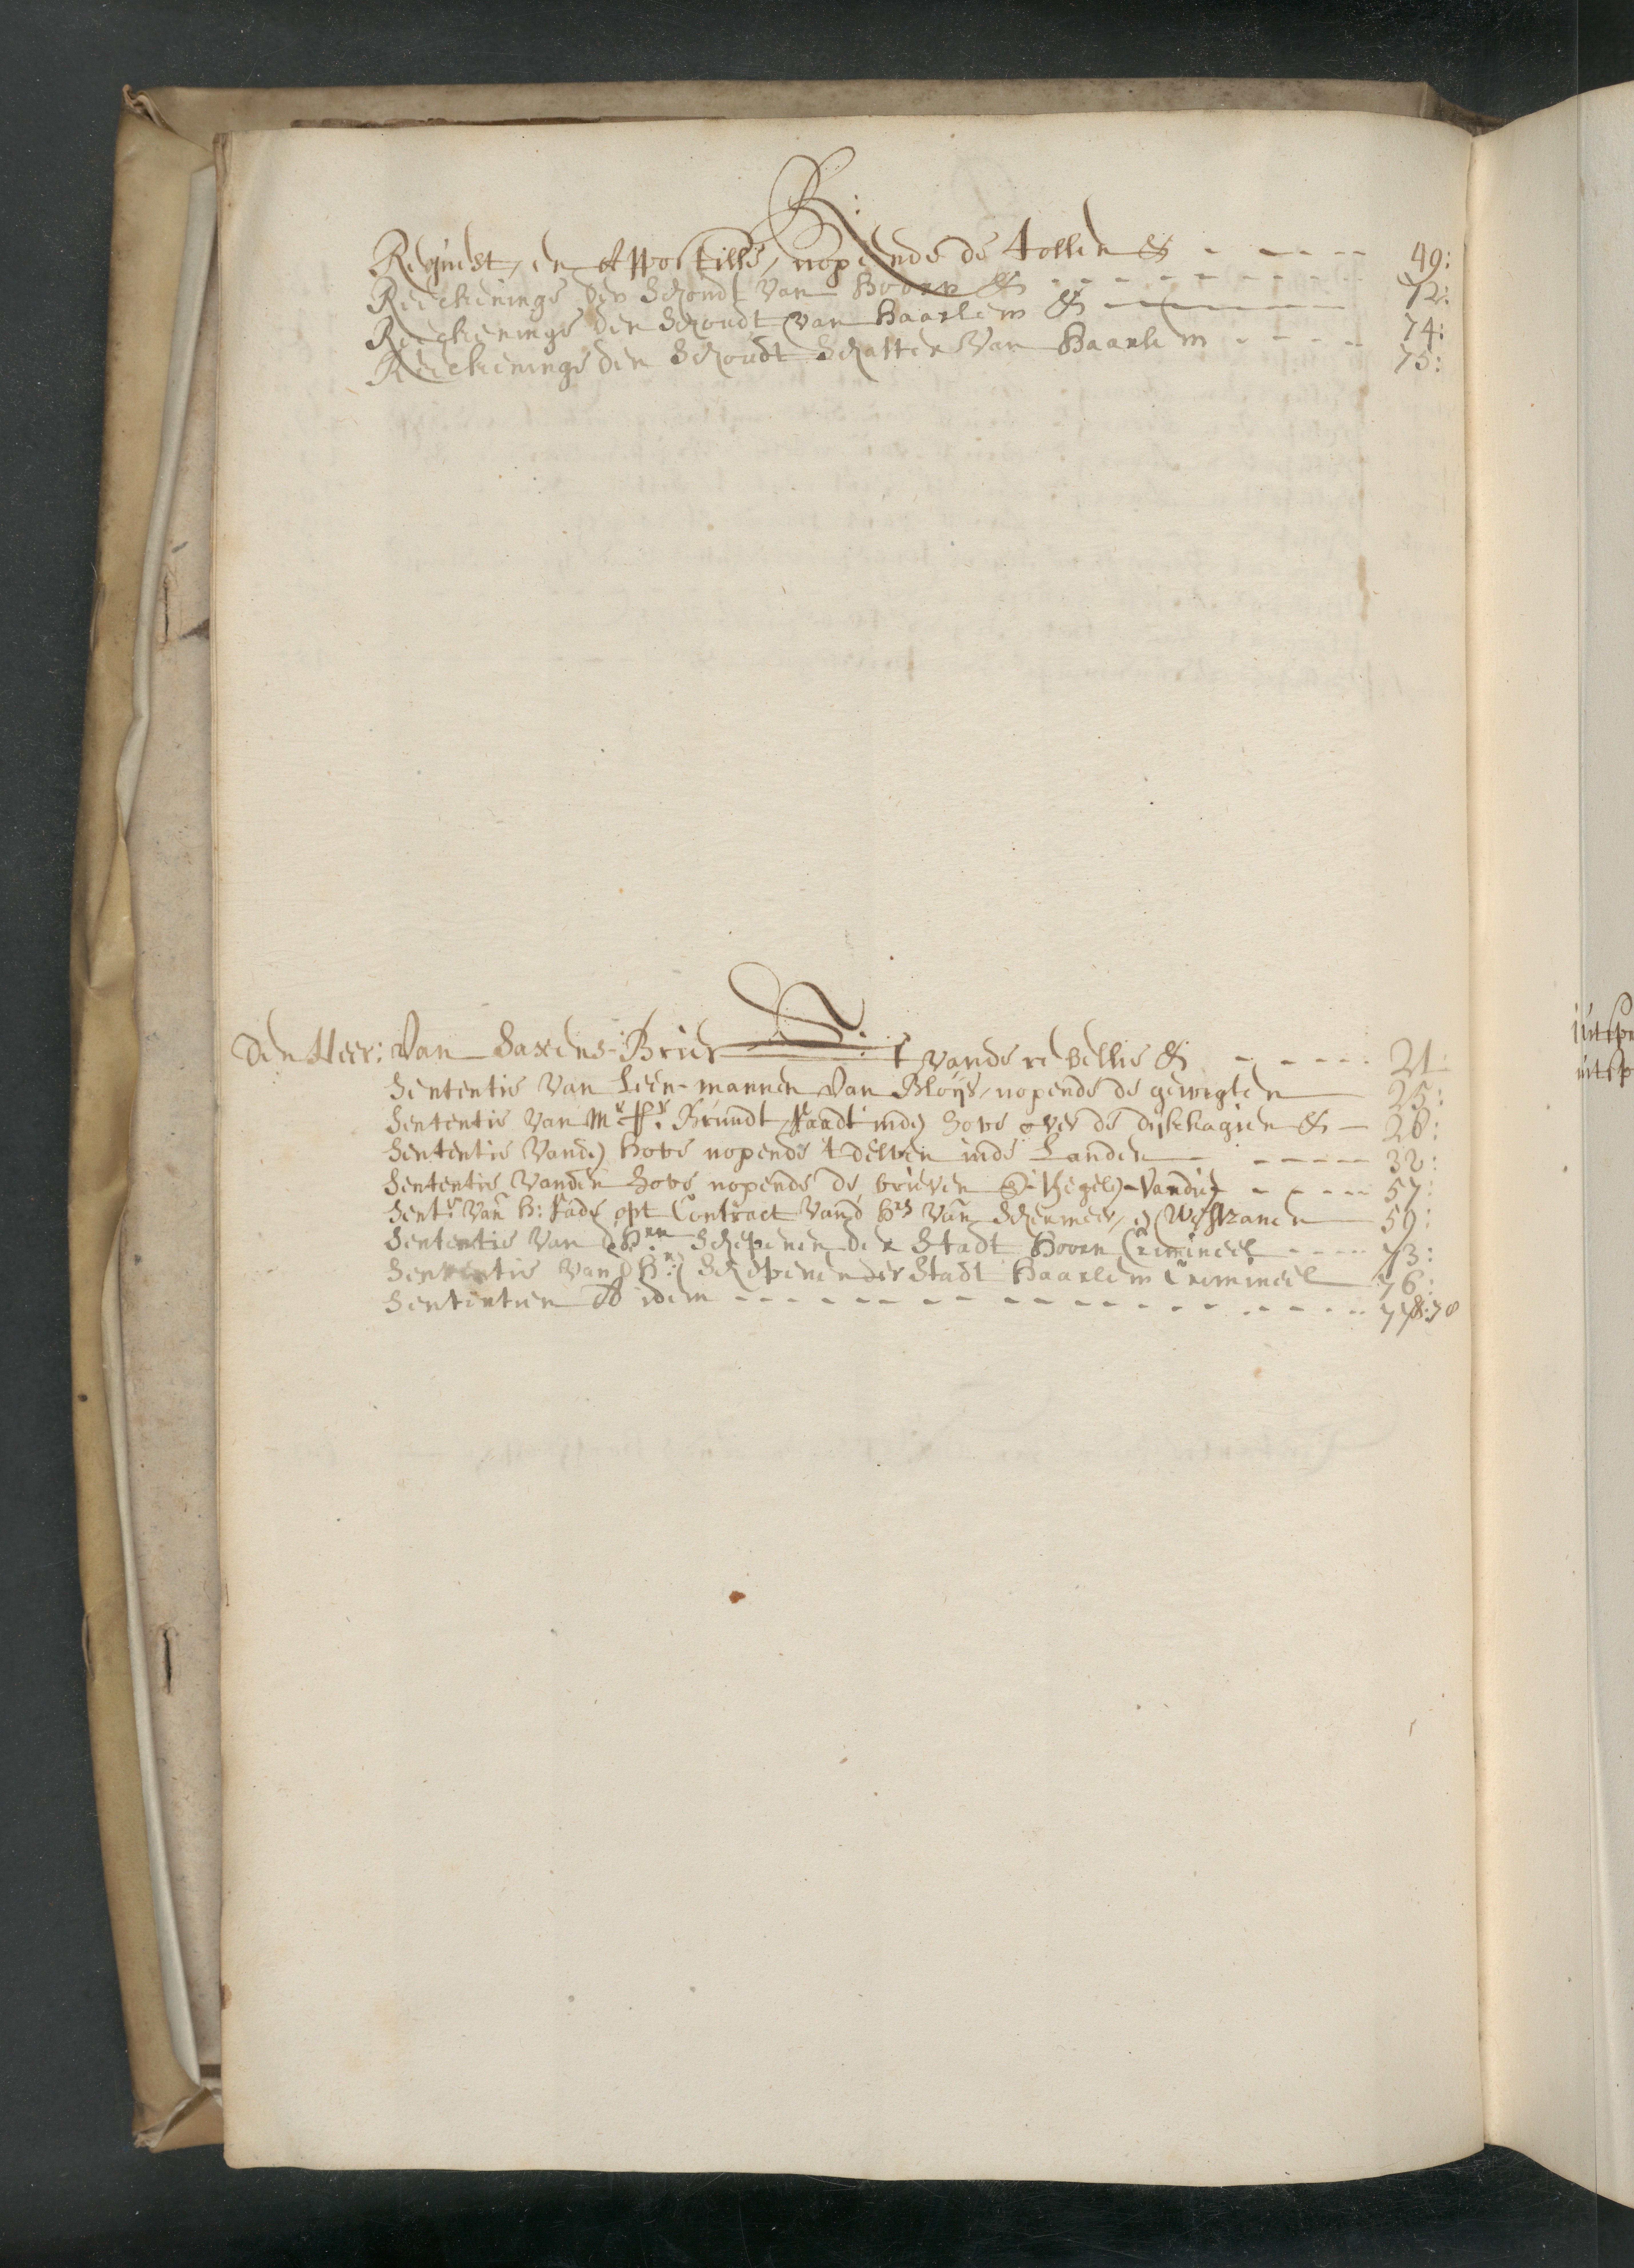 R:
Request, en Appostille, nopende de tollen & - - - - - 49:
Reeckeninge den Schoudt van Hoorn & - - - - - 72:
Reeckeninge den Schoudt van Haarlem & - 74:
Reeckeninge den Schoudt Schatter Van Haarlem - - - - 75:
S:
Den Heer: Van Saxens-Brief vande rebellie & - - - - - 21
Sententie Van Leen-mannen Van Bloijs, nopende de gewegten 25:
Sententie Van Mr Brundt Raadt inde hove over de dijckagien & - 28:
Sententie Vande hove nopende 't delven inde Landen - - - - - 32:
Sententie Vanden hove nopende de brieven Zegele Vandie - - - - - 57:
Sentie Van H: Rade opt Contract Vand Hrs Van Schermeer, en Westzanen 59:
Sententie Van d Hren Schepenen der Stadt Hoorn Crimineel - - - - 73:
Sententie Van d Hren Schepenen der Stadt Haarlem Crimineel 76:
Sententien Ab idem - - - - - - - - - - 77: 78